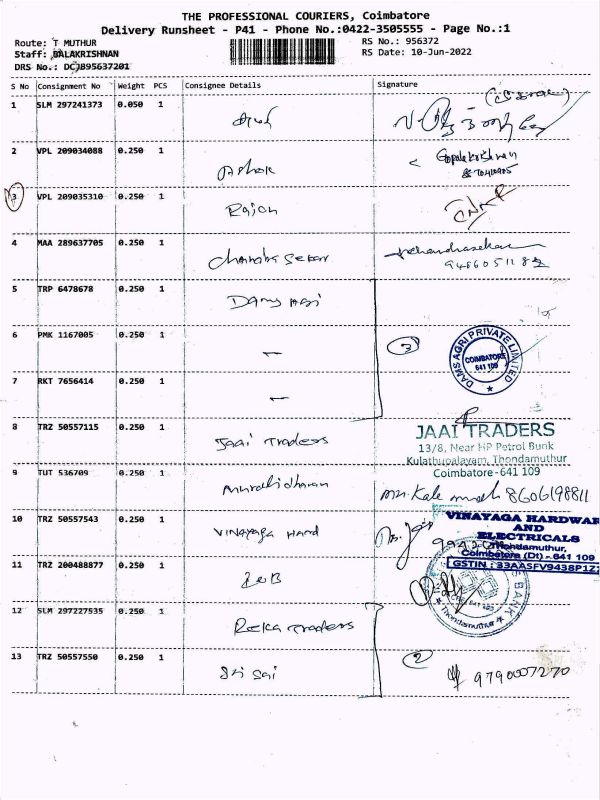 THE PROFESSIONAL COURIERS, Coimbatore
Delivery Runsheet - P41 - Phone No.:0422-3505555 - Page No.:1
Route: T MUTHUR
Staff: BALAKRISHNAN
DRS No.: DCJB95637201
RS No.: 956372
RS Date: 10-Jun-2022
S No Consignment No Weight PCS Consignee Details Signature
1 SLM 297241373 0.050 1
2 VPL 209034088 0.250 1 Ashok Gopalakrishnan
3 VPL 209035310 0.250 1 Rajan
4 MAA 289637705 0.250 1 Chandra Sekar
5 TRP 6478678 0.250 1
6 PMK 1167005 0.250 1 - 3
DAMS AGRI PRIVATE LIMITED
COIMBATORE
641 109
7 RKT 7656414 0.250 1 -
8 TRZ 50557115 0.250 1 Jaai Traders
JAAI TRADERS
13/8, Near HP Petrol Bunk
Kulathupalayam, Thondamuthur
Coimbatore-641 109
9 TUT 536709 0.250 1 Muralidharan 8606198811
10 TRZ 50557543 0.250 1 Vinayaga Hard
VINAYAGA HARDWAR
AND
ELECTRICALS
Thondamuthur,
Coimbatore (Dt) - 641 109
GSTIN : 33AASFV9438P1Z
11 TRZ 200488877 0.250 1 IOB
BANK
Thondamuthur
12 SLM 297227535 0.250 1 Reka Traders
13 TRZ 50557550 0.250 1 Sri Sai 2 9790007270